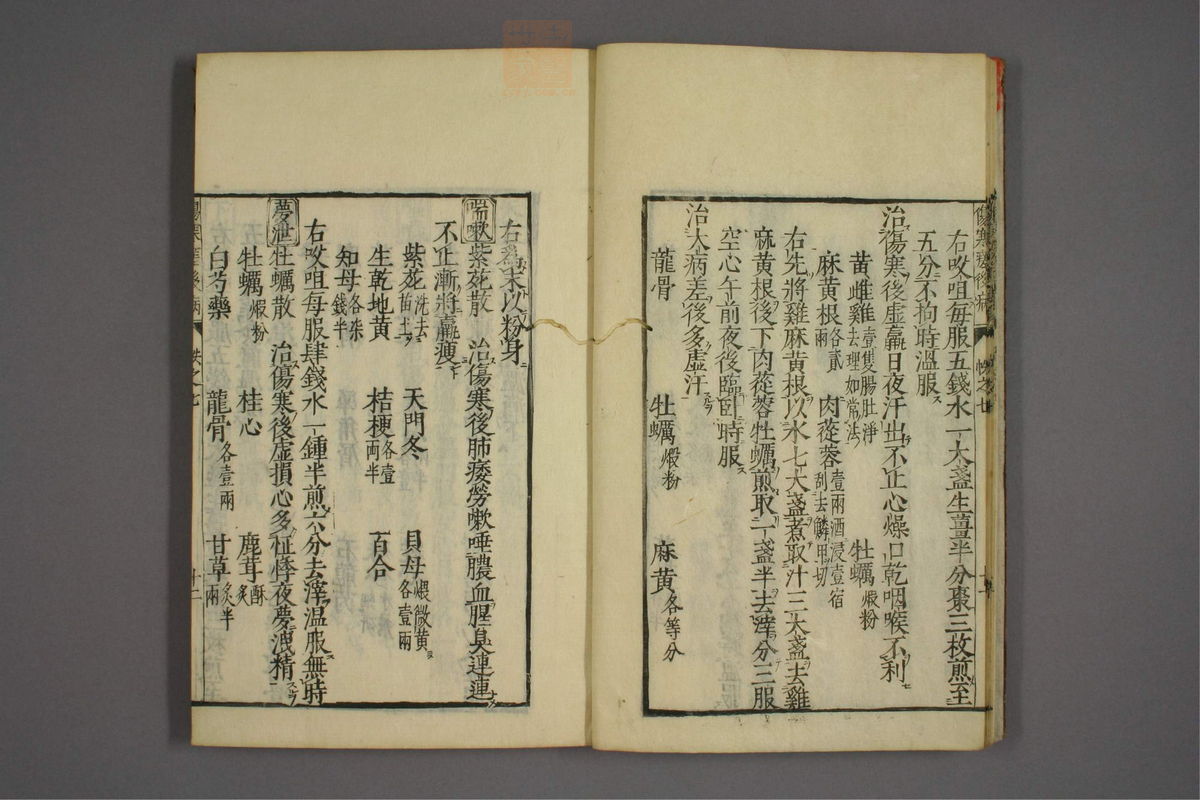 右㕮咀每服五錢水一大盞生薑半分棗三枚煎至
五分不拘時溫服
治傷寒後虛羸日夜汗出不止心燥口乾咽喉不利
黃雌雞壹隻腸肚淨去理如常法 牡蠣煅粉
麻黃根各貳兩 肉蓯蓉壹兩酒浸壹宿刮去鱗甲切
右先將雞麻黃根以水七大盞煮取汁三大盞去雞
麻黃根後下肉蓯蓉牡蠣煎取一盞半去滓分三服
空心午前夜後臨臥時服
治大病差後多虛汗
龍骨 牡蠣煅粉 麻黃各等分
右爲末以粉身
喘嗽紫菀散 治傷寒後肺痿勞嗽唾膿血腥臭連連
不止漸將羸瘦
紫菀洗去苗土 天門冬 貝母煨微黃各壹兩
生乾地黃 桔梗各壹兩半 百合
知母各柒錢半
右㕮咀每服肆錢水一鍾半煎六分去滓溫服無時
夢泄牡蠣散 治傷寒後虛損心多怔悸夜夢洩精
牡蠣煅粉 桂心 鹿茸酥炙
白芍藥 龍骨各壹兩 甘草炙半兩
傷寒瘥後病 帙之七 十二